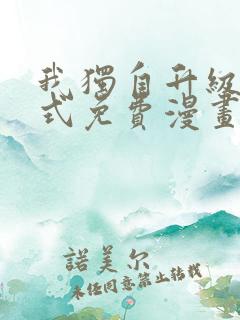 我獨自升級
式免費漫畫
諾美尔
未任同意禁止轉載